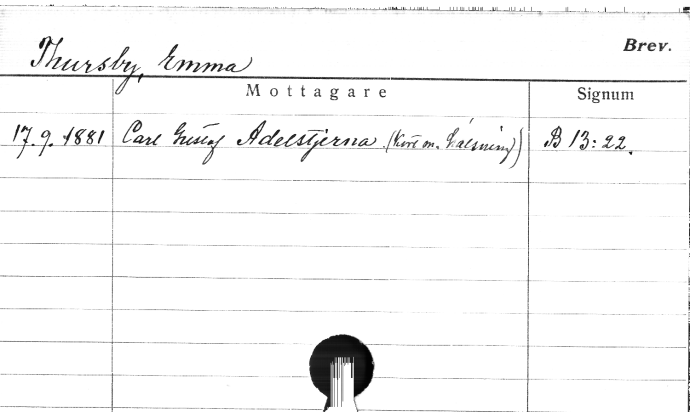 Brev.
Thursby, Emma
Mottagare Signum
17.9.1881 Carl Gustaf Adelstjerna (Kort m. hälsning) B 13:22.